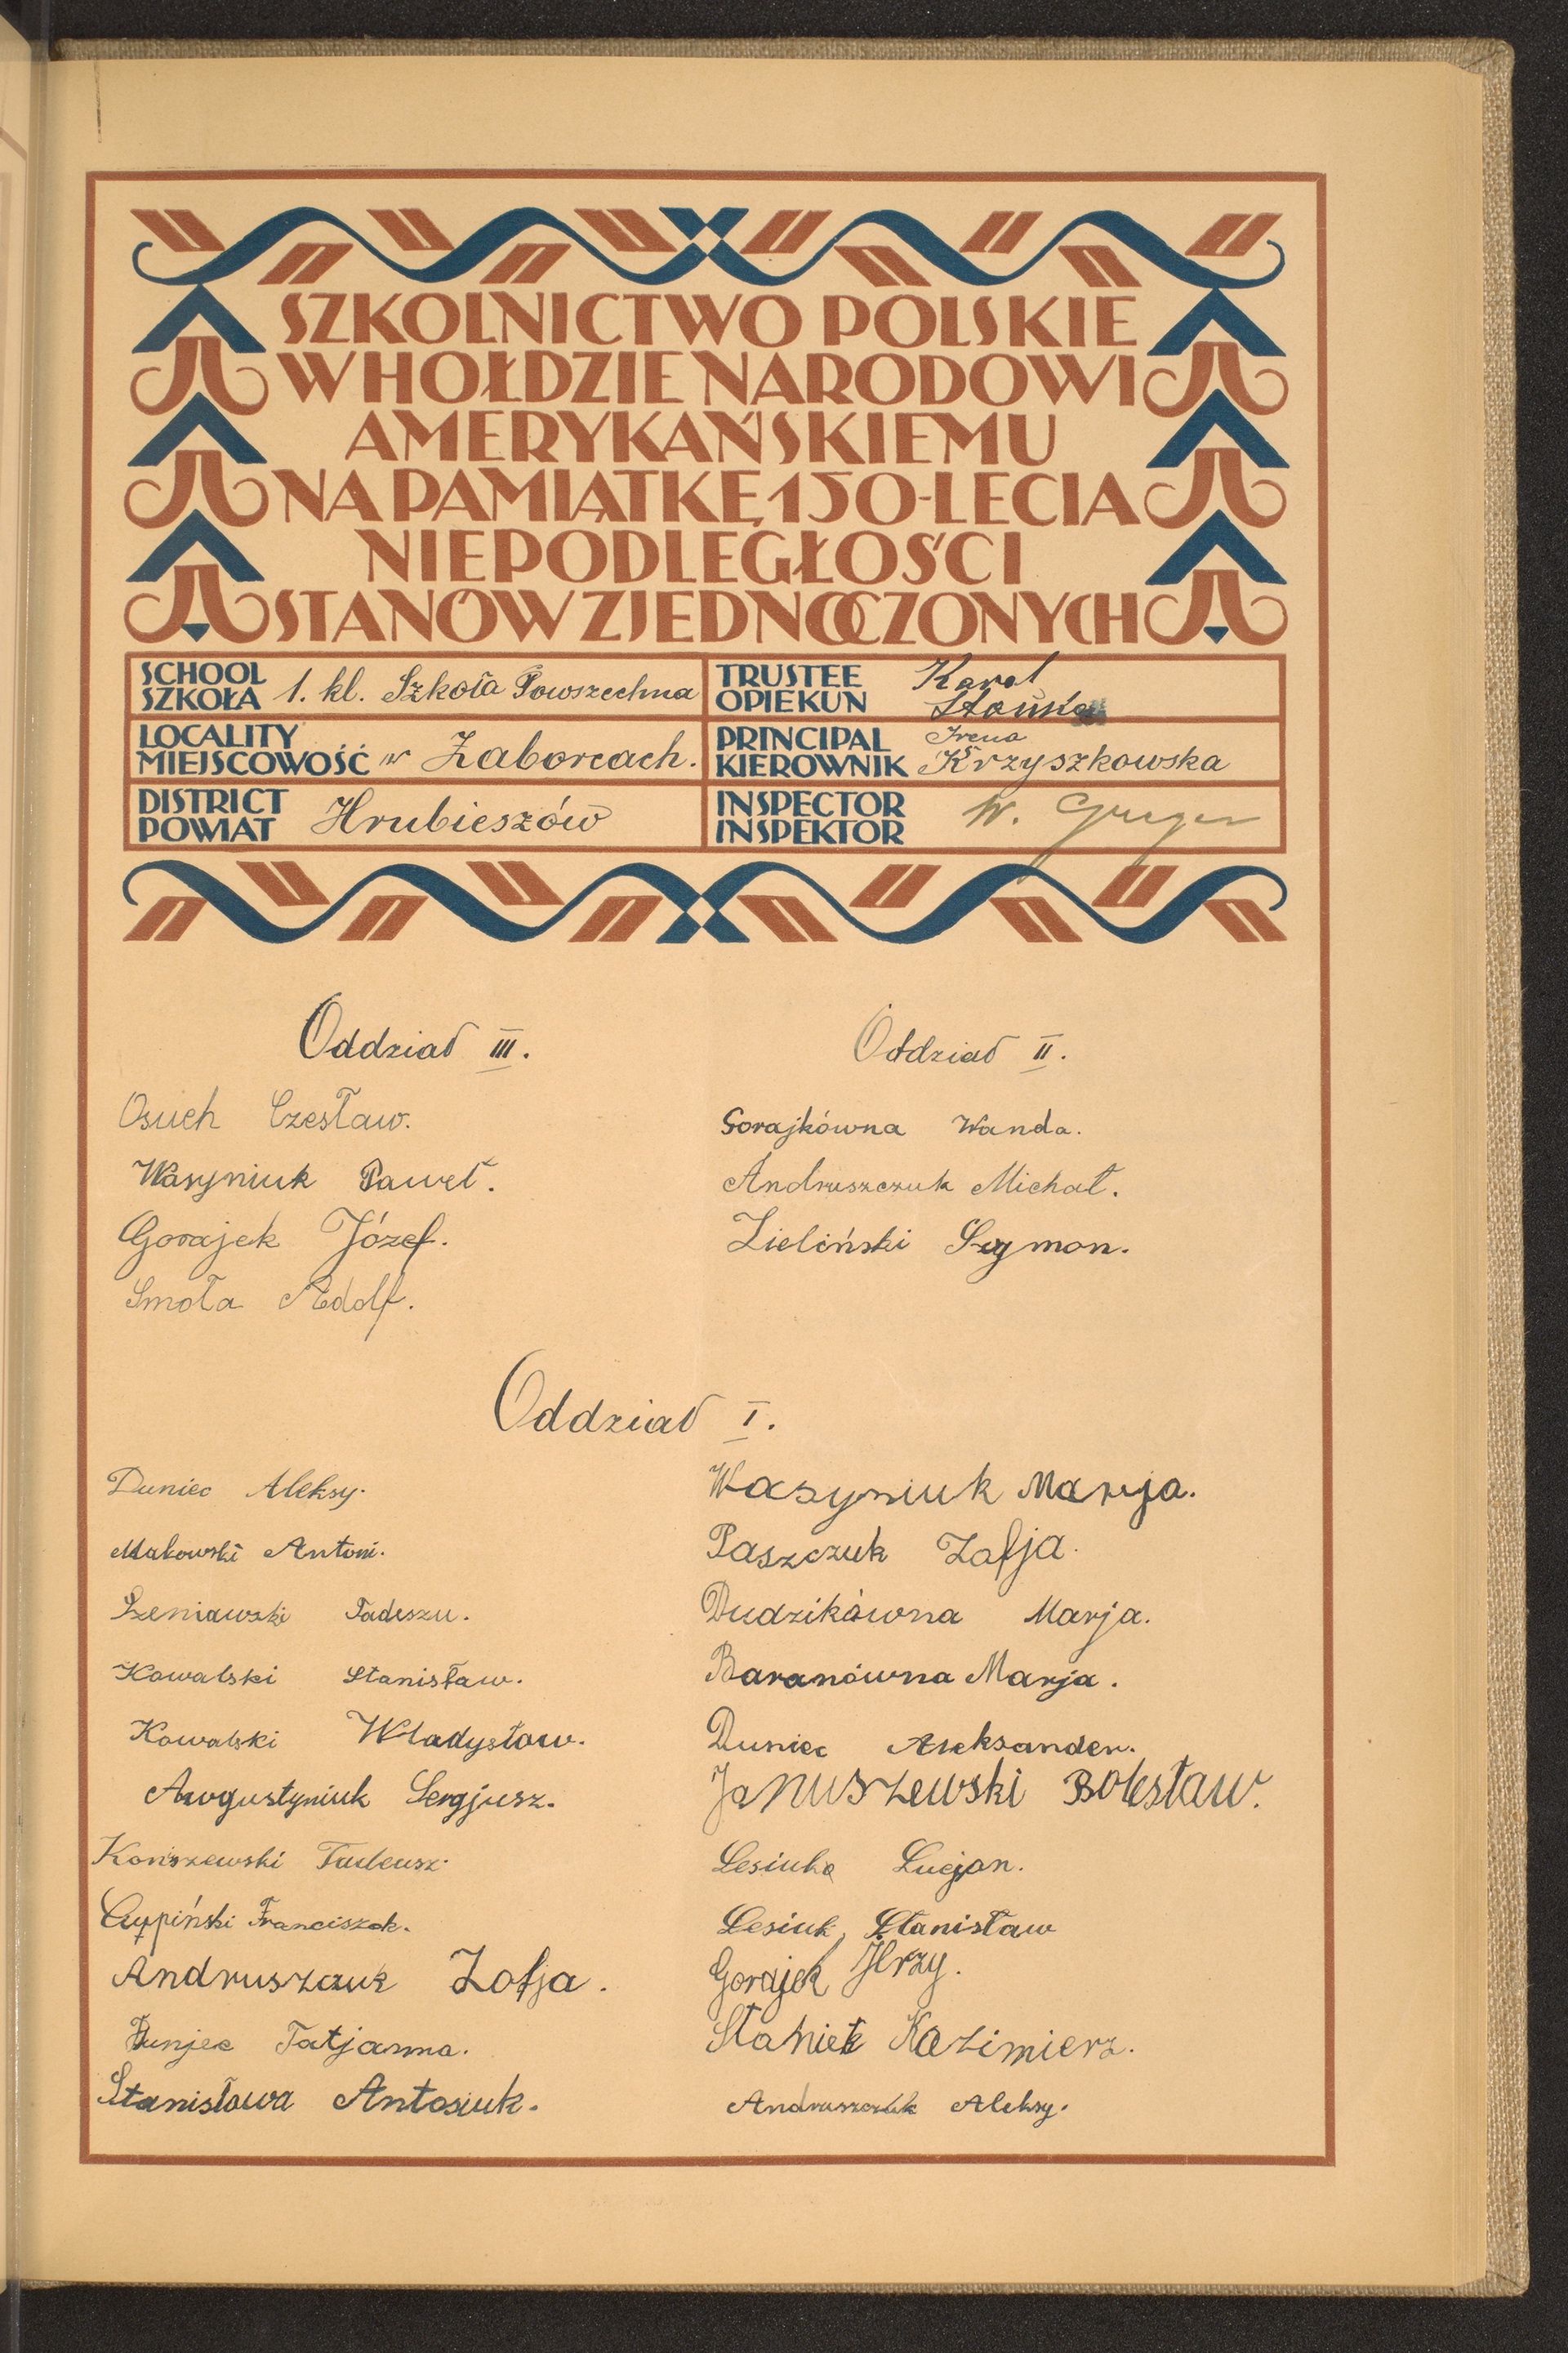 SZKOLNICTWO POLSKIE
W HOŁDZIE NARODOWI
AMERYKAŃSKIEMU
NA PAMIĄTKĘ 150-LECIA
NIEPODLEGŁOŚCI
STANÓW ZJEDNOCZONYCH
SCHOOL
SZKOŁA 1. kl. Szkoła Powszechna
TRUSTEE
OPIEKUN Karol
LOCALITY
MIEJSCOWOŚĆ w Zaborcach.
PRINCIPAL Irena
KIEROWNIK Krzyszkowska
DISTRICT
POWIAT Hrubieszów
INSPECTOR
INSPEKTOR W.
Oddział III.
Osuch Czesław.
Wasyniuk Paweł.
Gorajek Józef.
Smoła Adolf.
Oddział II.
Gorajkówna Wanda.
Andruszczuk Michał.
Zieliński Szymon.
Oddział I.
Duniec Aleksy.
Makowski Antoni.
Szeniawski Tadeszu.
Kowalski Stanisław.
Kowalski Władysław.
Awgustyniuk Sergjusz.
Koniszewski Tadeusz.
Czypiński Franciszek.
Andruszczuk Zofja.
Dunjec Tatjanna.
Stanisława Antosiuk.
Wasyniuk Marja.
Paszczuk Zofja.
Dudzikówna Marja.
Baranówna Marja.
Duniec Aleksander.
Januszewski Bolesław.
Lesiuka Lucjan.
Lesiuk, Stanisław
Gorajek Jerzy.
Staniek Kazimierz.
Andruszczuk Aleksy.